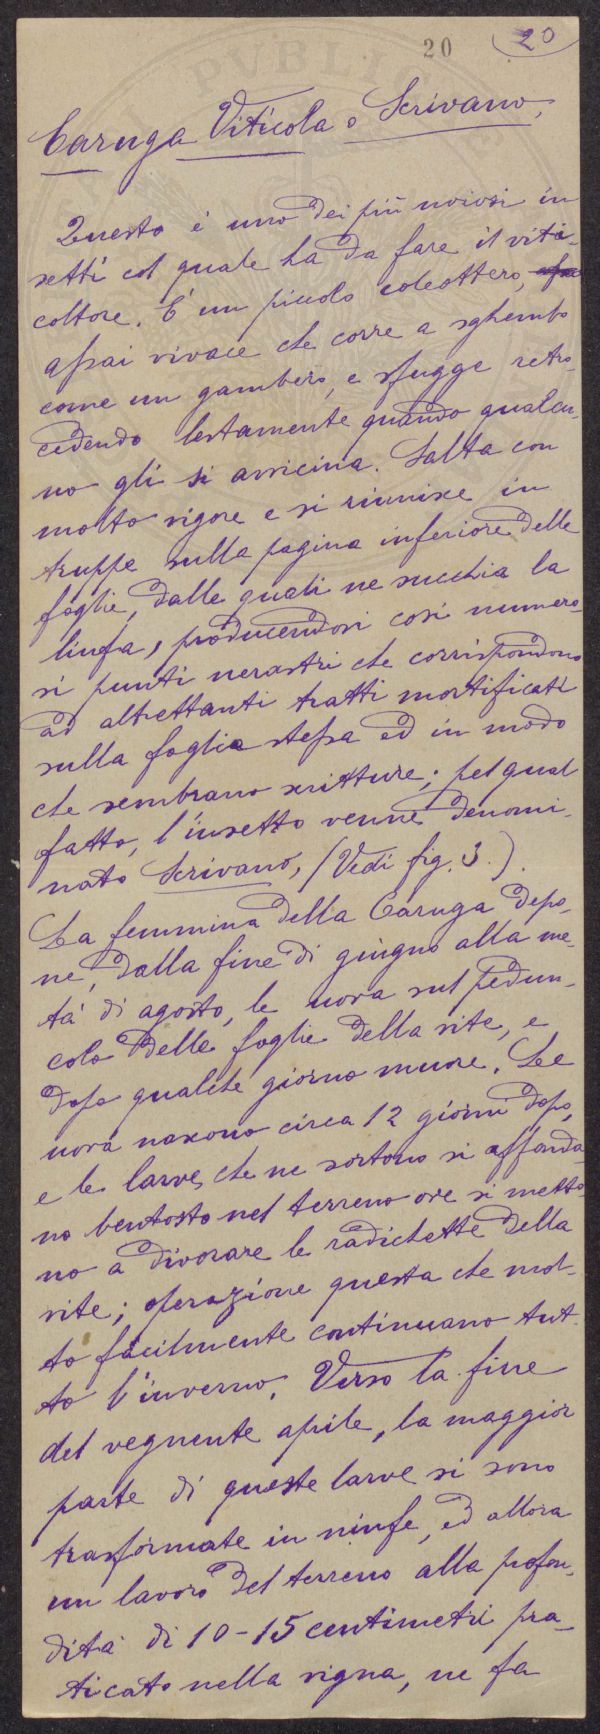 20 20
Caruga Viticola o Scrivano,
Questo è uno dei più noiosi in
setti col quale ha da fare il viti-
coltore. È un piccolo coleottero,
assai vivace che corre a sghembo
come un gambero, e sfugge retro-
cedendo lestamente quando qualcu-
no gli si avvicina. Salta con
molto vigore e si riunisce in
truppe sulla pagina inferiore delle
foglie, dalle quali ne succhia la
linfa, producendosi così numero-
si punti nerastri che corrispondono
ad altrettanti tratti mortificati
sulla foglia stessa ed in modo
che sembrano scritture; pel qual
fatto, l'insetto venne denomi-
nato Scrivano, (Vedi fig. 3.).
La femmina della Caruga depo-
ne, dalla fine di giugno alla me-
tà di agosto, le uova sul pedun-
colo delle foglie della vite, e
dopo qualche giorno muore. Le
uova nascono circa 12 giorni dopo,
e le larve che ne sortono si affonda-
no bentosto nel terreno ove si metto-
no a divorare le radichette della
vite; operazione questa che mol-
to facilmente continuano tut-
to l'inverno. Verso la fine
del vegnente aprile, la maggior
parte di queste larve si sono
trasformate in ninfe, ed allora
un lavoro del terreno alla profon-
dità di 10-15 centimetri pra-
ticato nella vigna, ne fa